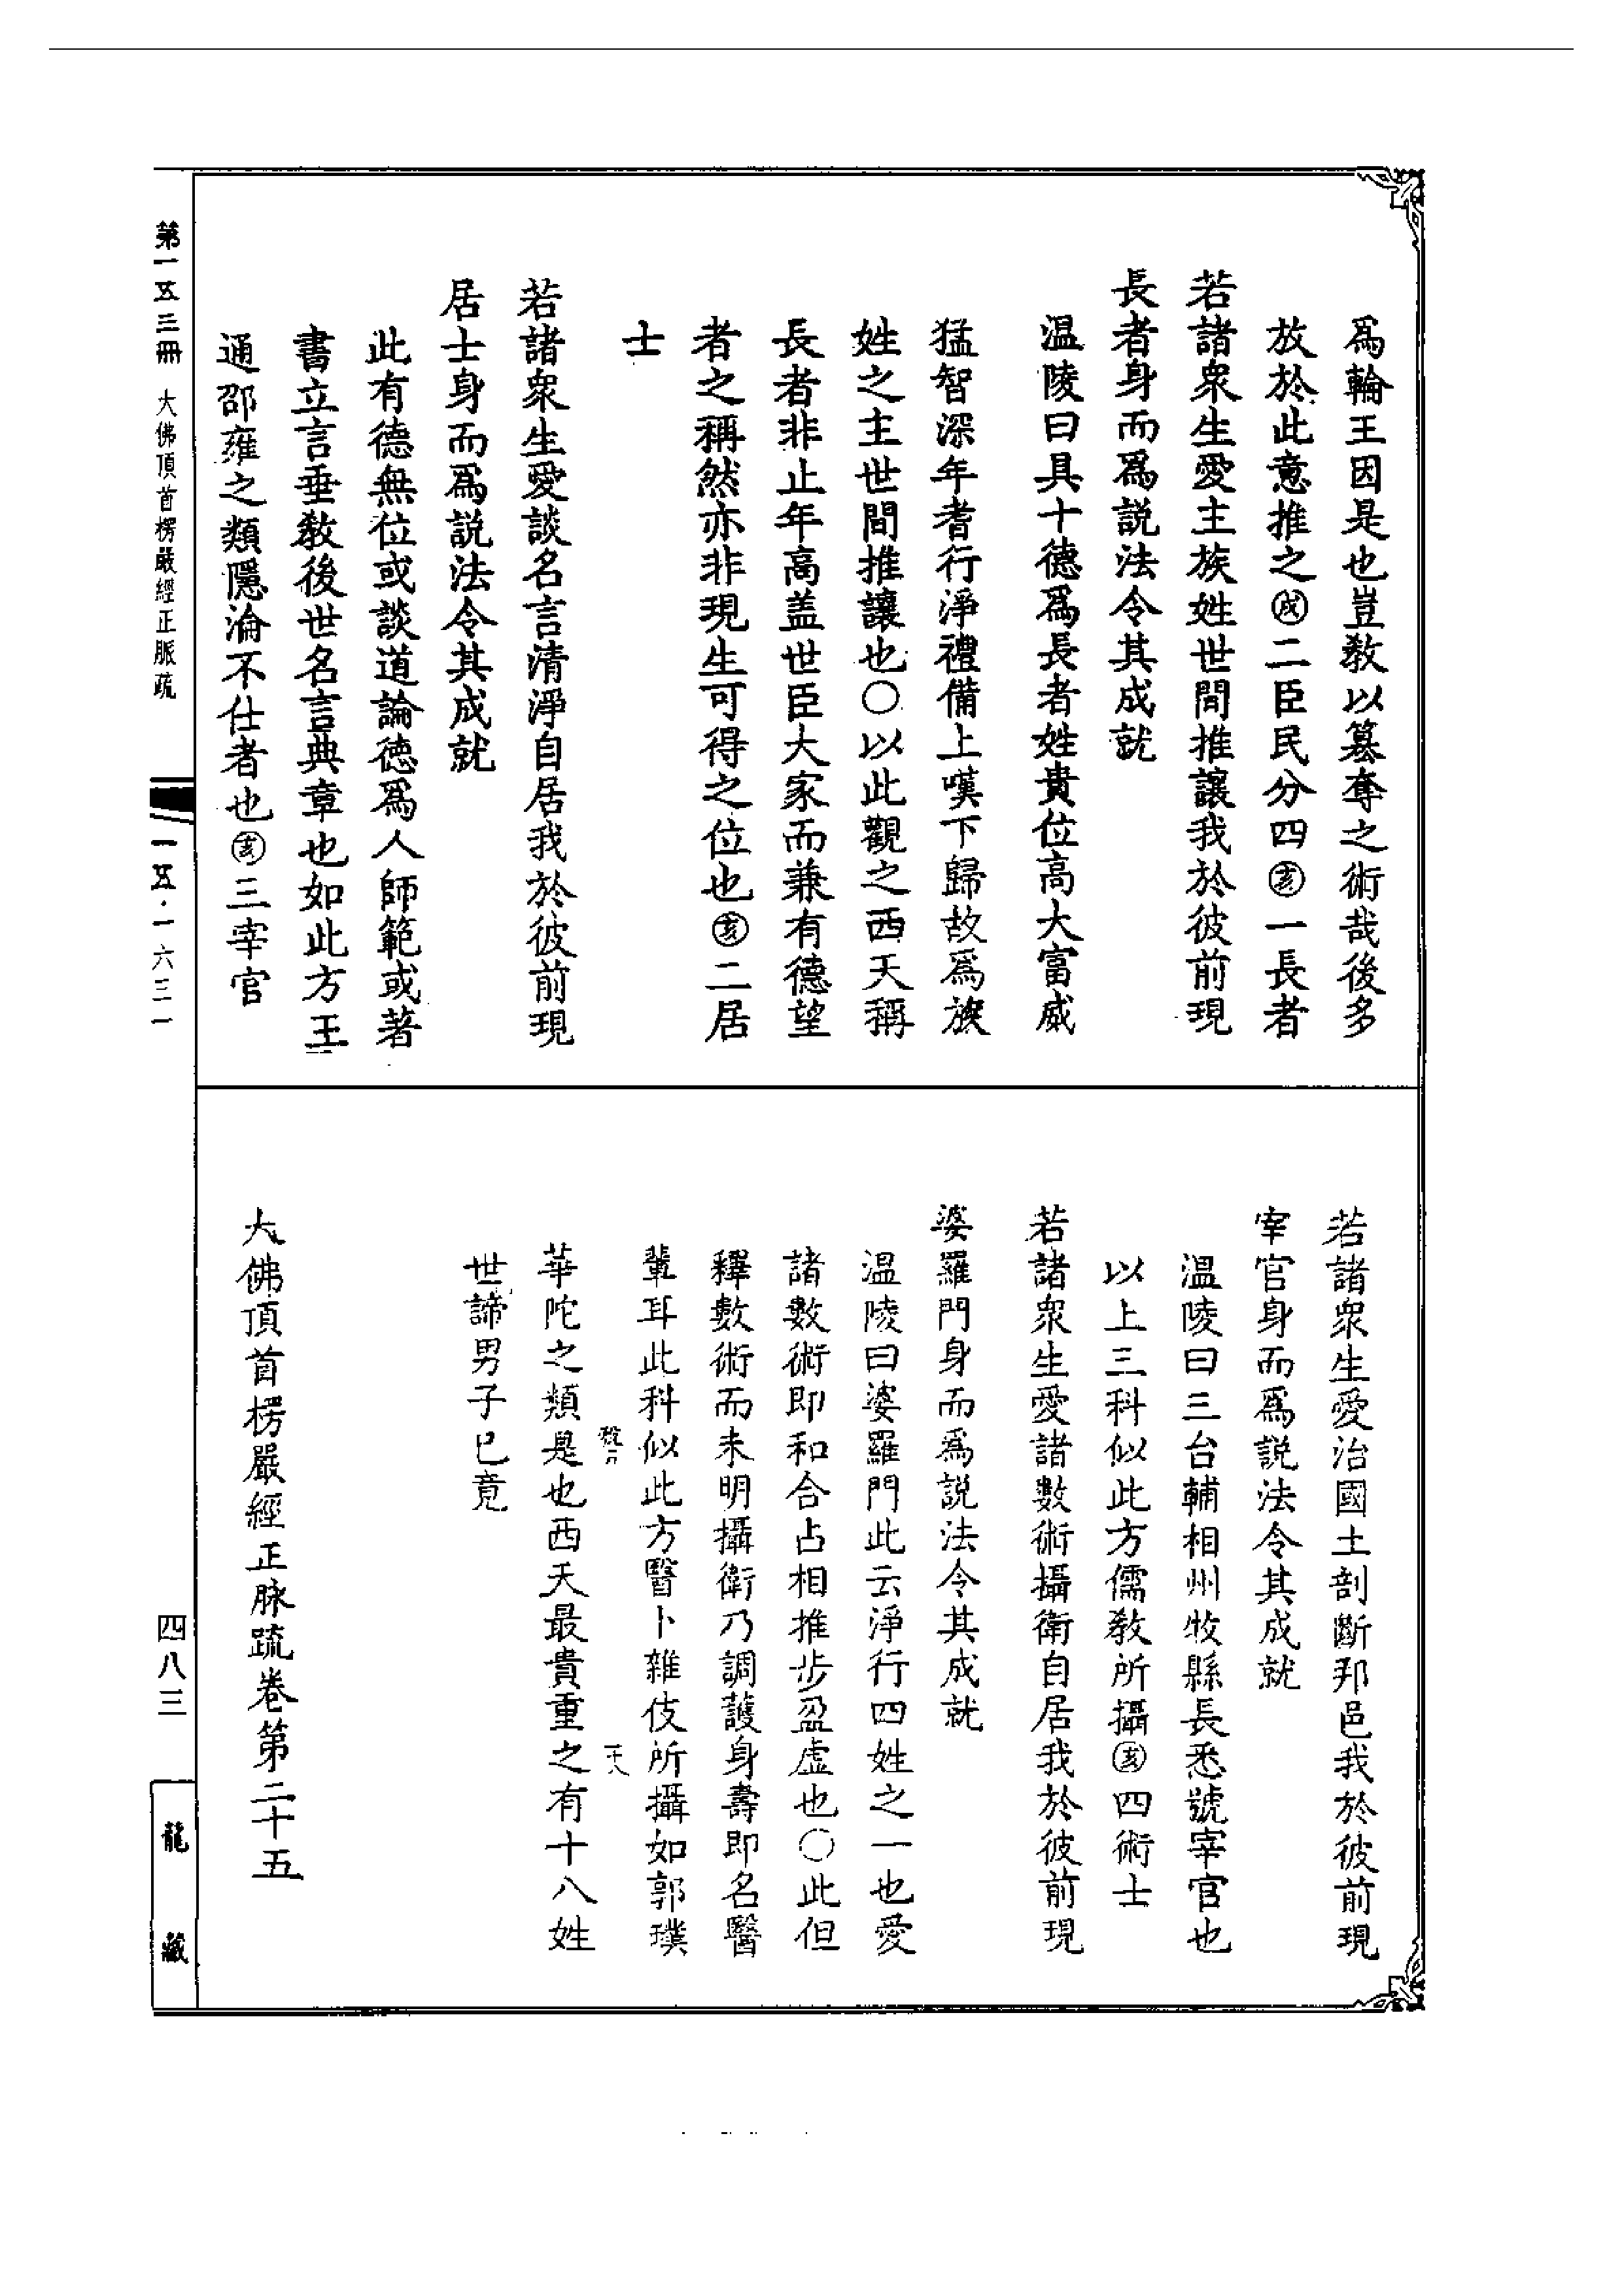 爲輪王因是也豈敎以篡奪之術哉後多
放於此意推之㊛戌二臣民分四亥一長者
若諸衆生愛主族姓世間推讓我於彼前現
長者身而爲説法令其成就
温陵曰具十德爲長者姓貴位高大富威
猛智深年耆行淨禮備上嘆下歸故爲族
姓之主世間推讓也〇以此觀之西天稱
長者非止年高盖世臣大家而兼有德望
者之稱然亦非現生可得之位也亥二居
士
若諸衆生愛談名言清淨自居我於彼前現
居士身而爲説法令其成就
此有德無位或談道論德爲人師範或著
書立言垂敎後世名言典章也如此方王
通邵雍之類隱淪不仕者也亥三宰官
若諸衆生愛治國土剖斷邦邑我於彼前現
宰官身而爲説法令其成就
温陵曰三台輔相州牧縣長悉號宰官也
以上三科似此方儒敎所攝亥四術士
若諸衆生愛諸數術攝衛自居我於彼前現
婆羅門身而爲説法令其成就
温陵曰婆羅門此云淨行四姓之一也愛
諸數術即和合占相推步盈虛也〇此但
釋數術而未明攝衛乃調護身壽即名醫
輩耳此科似此方醫卜雜伎所攝如郭璞
華陀之類是也西天最貴重之有十八姓
世諦男子已竟
大佛頂首楞嚴經正脉疏卷第二十五
第一五三冊 大佛頂首楞嚴經正脈疏
一五·一六三一
四八三
龍藏